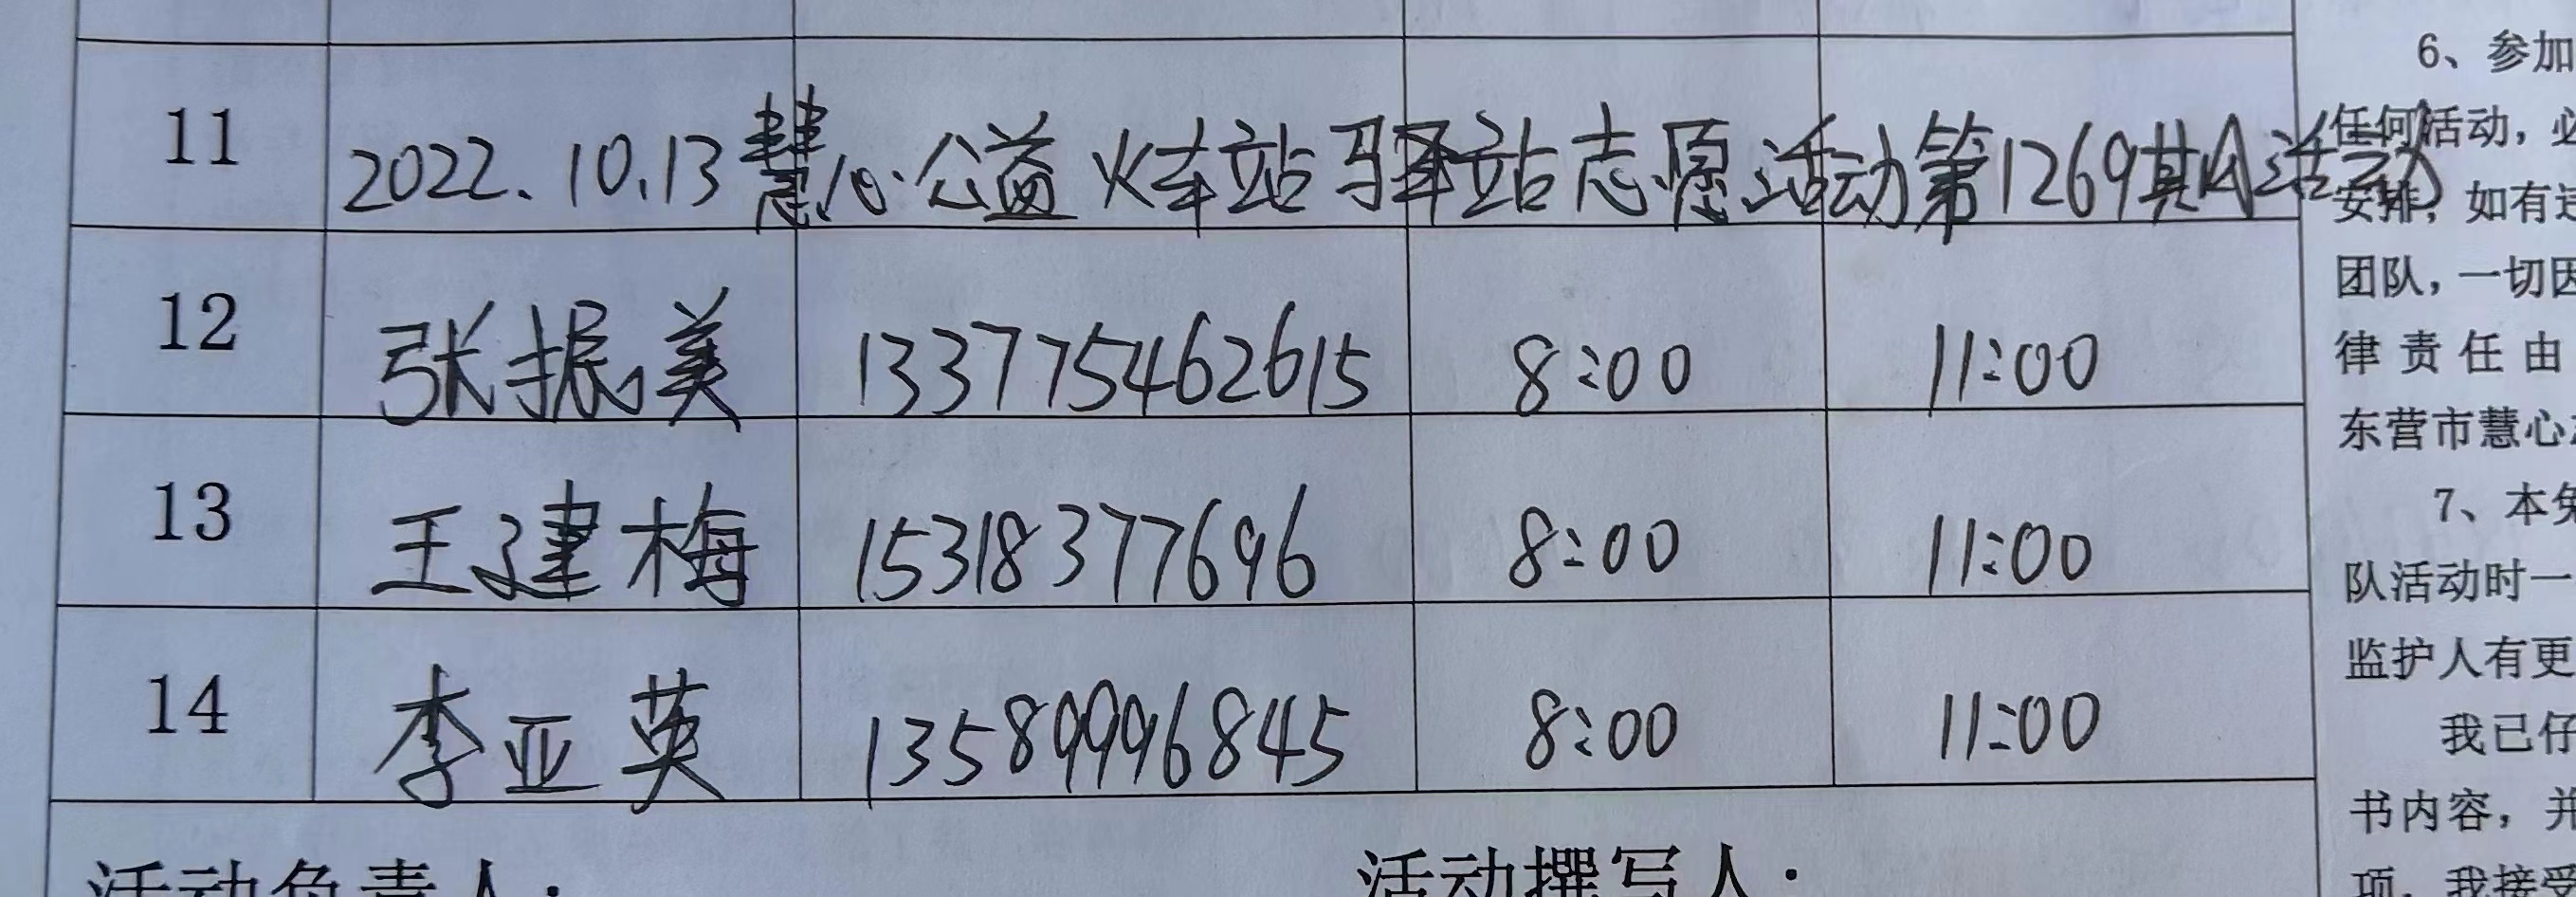 11 2022.10.13慧心公益火车站驿站志愿活动第1269期活动
12 张振美 133775462615 8:00 11:00
13 王建梅 15318377696 8:00 11:00
14 李亚英 13589996845 8:00 11:00
活动负责人:
活动撰写人:
6、参加
任何活动，必
安排，如有
团队，一切因
律责任由
东营市慧心
7、本免
队活动时一
监护人有更
我已仔
书内容，并
项，我接受